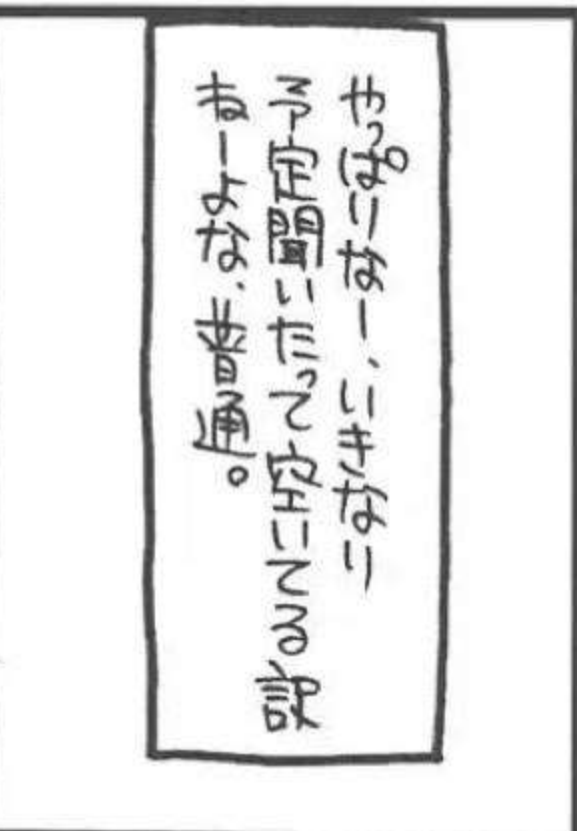 やっぱりなー、いきなり
予定聞いたって空いてる訳
ねーよな、普通。